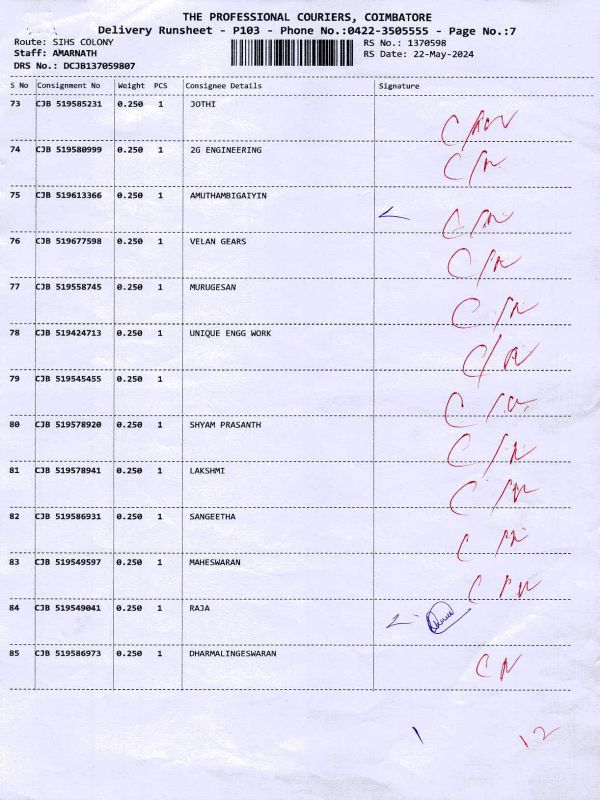 THE PROFESSIONAL COURIERS, COIMBATORE
Delivery Runsheet - P103 - Phone No.:0422-3505555 - Page No.:7
Route: SIHS COLONY RS No.: 1370598
Staff: AMARNATH RS Date: 22-May-2024
DRS No.: DCJB137059807
S No Consignment No Weight PCS Consignee Details Signature
73 CJB 519585231 0.250 1 JOTHI
74 CJB 519580999 0.250 1 2G ENGINEERING
75 CJB 519613366 0.250 1 AMUTHAMBIGAIYIN
76 CJB 519677598 0.250 1 VELAN GEARS
77 CJB 519558745 0.250 1 MURUGESAN
78 CJB 519424713 0.250 1 UNIQUE ENGG WORK
79 CJB 519545455 0.250 1
80 CJB 519578920 0.250 1 SHYAM PRASANTH
81 CJB 519578941 0.250 1 LAKSHMI
82 CJB 519586931 0.250 1 SANGEETHA
83 CJB 519549597 0.250 1 MAHESWARAN
84 CJB 519549041 0.250 1 RAJA
85 CJB 519586973 0.250 1 DHARMALINGESWARAN
1 12